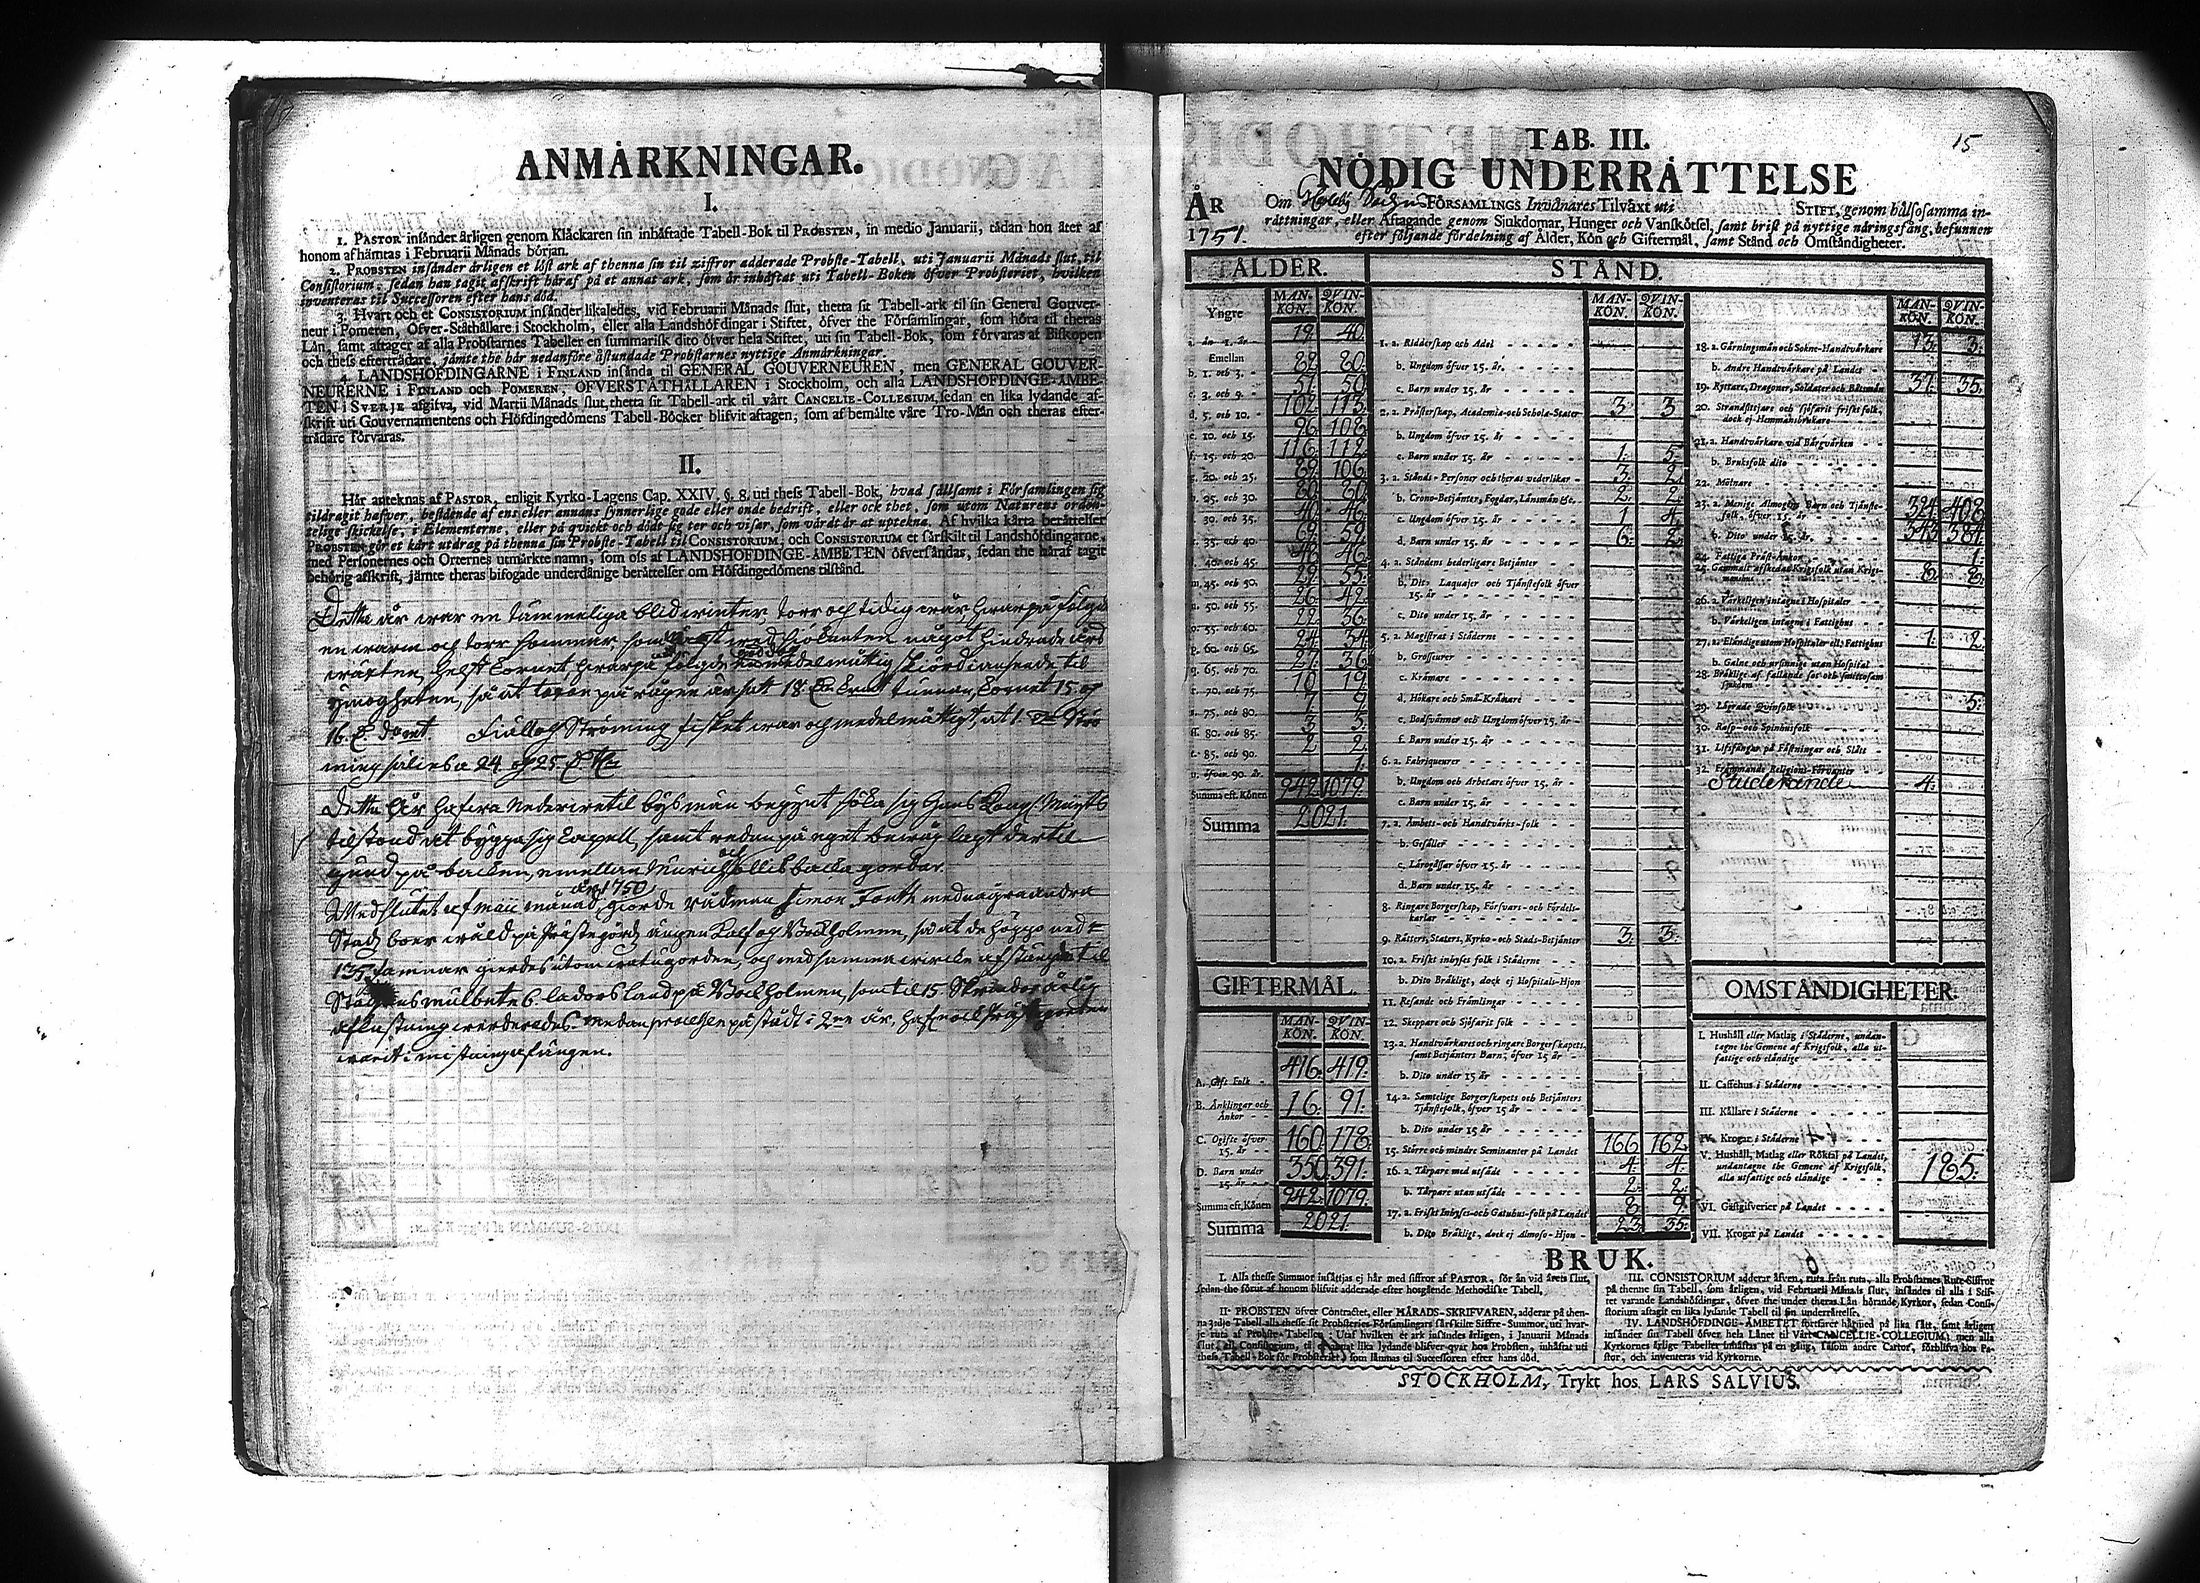 ANMÄRKNINGAR.
I.
1. PASTOR insänder årligen genom Klåckaren sin inhäftade Tabell-Bok til PROBSTEN, in medio Januarii, tädan hon åter af
honom afhämtas i Februarii Månads början.
2. PROBSTEN insänder årligen et löst ark af thenna sin til ziffror adderade Probste-Tabell, uti Januarii Månads slut, til
Consistorium, sedan han tagit afskrift häraf på et annat ark, som är inhäftat uti Tabell-Boken öfver Probsteriet, hvilken
inventeras til Successoren efter hans död.
3. Hvart och et CONSISTORIUM insänder likaledes, vid Februarii Månads slut, thetta sit Tabell-ark til sin General Gouver-
neur i Pomeren, Öfver-Ståthållare i Stockholm, eller alla Landshöfdingar i Stiftet, öfver the Församlingar, som höra til theras
Län, samt aftager af alla Probstarnes Tabeller en summarisk dito öfver hela Stiftet, uti sin Tabell-Bok, som förvaras af Biskopen
och thess efterträdare, jämte the här nedanföre åstundade Probstarnes nyttige Anmärkningar.
4. LANDSHÖFDINGARNE i FINLAND insända til GENERAL GOUVERNEUREN, men GENERAL GOUVER-
NEURERNE i FINLAND och POMEREN, ÖFVERSTÅTHÅLLAREN i Stockholm, och alla LANDSHÖFDINGE-ÄMBE-
TEN i SVERJE afgifva, vid Martii Månads slut, thetta sit Tabell-ark til vårt CANCELIE-COLLEGIUM, sedan en lika lydande af-
skrift uti Gouvernamentens och Höfdingedömens Tabell-Böcker blifvit aftagen, som af bemälte våre Tro-Män och theras efter-
trädare förvaras.
II.
Här antecknas af PASTOR, enligit Kyrko-Lagens Cap. XXIV, §. 8. uti thess Tabell-Bok, hvad sällsamt i Församlingen sig
tildragit hafver, bestående af ens eller annans synnerlige gode eller onde bedrift, eller ock thet, som utom Naturens orden-
telige skickelse, i Elementerne, eller på qvickt och dödt sig ter och visar, som värdt är at uptekna. Af hvilka kårta berättelser
PROBSTEN gör et kårt utdrag på thenna sin Probste-Tabell til CONSISTORIUM, och CONSISTORIUM et särskilt til Landshöfdingarne,
med Personernes och Orternes utmärkte namn, som oss af LANDSHÖFDINGE-ÄMBETEN öfversändas, sedan the häraf tagit
behörig afskrift, jämte theras bifogade underdånige berättelser om Höfdingedömens tilstånd.
Detta år war en tämmeliga blid winter, torr och tidig wår, hwarpå följde
en warm och torr sommar, som med hindrade års
wäxten, helst Cornet, hwarpå följde medelmåttig skiörd anseende til
myckenheten, så at taxan på rågen är satt 18 tunnan, Cornet 15 och
16 Fisk och Strömming fisket war och medelmåttigt, at 1 Strö
ming säljes a 24 och 25
Detta Åhr hafwa Nederwetil bysmän begynt söka sig hans Kongl. Maj:ts
tilstånd at byggia sig Capell, samt redan på eget bewåg lagt dertil
grund på backen, emellan Murick och Hollisbacka gårdar.
Med slutet af Maii månad år 1750 giorde rådman Simon Forth med några andra
Stads boer wåld på Prästegårds ängen Kalf och Bockholmen, så at de höggo ned
135 famnar giärdes utom watugården, och med samma
Stadsens mulbete 6 ladors land på Bockholmen, som til 15 Skrindor årlig
afkastning werderades. Medan processen påstådt i 2ne år, hafwer Prästegården
warit i mistning af ängen.
15
TAB. III.
NÖDIG UNDERRÄTTELSE
ÅR 1751.
Om Socken FÖRSAMLINGS Inwånares Tilväxt uti STIFT, genom hälsosamma in-
rättningar, eller Aftagande genom Sjukdomar, Hunger och Vanskötsel, samt brist på nyttige näringsfång, befunnen
efter följande fördelning af Ålder, Kön och Giftermål, samt Stånd och Omständigheter.
ÅLDER.
MAN-KÖN. QVIN-KÖN.
Yngre
a. än 1. år 19. 40.
Emellan
b. 1. och 3. 82. 80.
c. 3. och 5. 57. 50.
d. 5. och 10. 102. 113.
e. 10. och 15. 96. 108.
f. 15. och 20. 116. 112.
g. 20. och 25. 82. 106.
h. 25. och 30. 80. 80.
i. 30. och 35. 40. 46.
k. 35. och 40. 69. 59.
l. 40. och 45. 48. 46.
m. 45. och 50. 29. 55.
n. 50. och 55. 26. 42.
o. 55. och 60. 22. 36.
p. 60. och 65. 24. 34.
q. 65. och 70. 27. 36.
r. 70. och 75. 10. 19.
s. 75. och 80. 7.
ss. 80. och 85. 3. 5.
t. 85. och 90. 2. 2.
u. öfver 90. år 1.
Summa eft. Könen 942. 1079.
Summa 2021.
GIFTERMÅL.
MAN-KÖN. QVIN-KÖN.
A. Gift Folk 416. 419.
B. Änklingar och Änkor 16. 91.
C. Ogifte öfver 15. år 160. 178.
D. Barn under 15. år 350. 391.
Summa eft. Könen 942. 1079.
Summa 2021.
STÅND.
MAN-KÖN. QVIN-KÖN.
1. a. Ridderskap och Adel
b. Ungdom öfver 15. år.
c. Barn under 15. år
2. a. Prästerskap, Academiæ-och Scholæ-Stater 3. 3.
b. Ungdom öfver 15. år
c. Barn under 15. år 1. 5.
3. a. Stånds-Personer och theras vederlikar 3. 2.
b. Crono-Betjänter, Fogdar, Länsmän &c. 2. 2.
c. Ungdom öfver 15. år 1. 4.
d. Barn under 15. år 6. 2.
4. a. Ståndens hederligare Betjänter
b. Dito Laquajer och Tjänstefolk öfver 15. år
c. Dito under 15. år
5. a. Magistrat i Städerne
b. Grosseurer
c. Krämare
d. Hökare och Små-Krämare
e. Bodsvänner och Ungdom öfver 15. år
f. Barn under 15. år
6. a. Fabriqueurer
b. Ungdom och Arbetare öfver 15. år
c. Barn under 15. år
7. a. Ämbets- och Handtvärks-folk
b. Gesäller
c. Lärogåssar öfver 15. år
d. Barn under 15. år
8. Ringare Borgerskap, Försvars- och Fördels-karlar
9. Rätters, Staters, Kyrko- och Stads-Betjänter 3. 3.
10. a. Friskt inhyses folk i Städerne
b. Dito Bräkligt, dock ej Hospitals-Hjon
11. Resande och Främlingar
12. Skeppare och Sjöfarit folk
13. a. Handtvärkares och ringare Borgerskapets, samt Betjänters Barn, öfver 15 år
b. Dito under 15 år
14. a. Samtelige Borgerskapets och Betjänters Tjänstefolk, öfver 15 år
b. Dito under 15 år
15. Större och mindre Seminanter på Landet 166 162
16. a. Tårpare med utsäde 4. 4.
b. Tårpare utan utsäde 2. 2.
17. a. Friskt Inhyses-och Gatuhus-folk på Landet 8. 9.
b. Dito Bräkligt, dock ej Almoso-Hjon 23. 35.
MAN-KÖN. QVIN-KÖN.
18. a. Gärningsmän och Sokne-Handtvärkare 13. 3.
b. Andre Handtvärkare på Landet
19. Ryttare, Dragoner, Soldater och Båtsmän 37. 35.
20. Strandsittjare och sjöfarit friskt folk, dock ej Hemmansbrukare
21. a. Handtvärkare vid Bärgvärken
b. Bruksfolk dito
22. Mölnare
23. a. Menige Almogens Barn och Tjänste-folk, öfver 15. år 324. 408
b. Dito under 15. år 343 384.
24. Fattiga Präst-Änkor 1.
25. Gammalt afskedat Krigsfolk utan Krigs-mans hus 8. 8.
26. a. Värkeligen intagne i Hospitaler
b. Värkeligen intagne i Fattighus
27. a. Eländige utom Hospitaler ell. Fattighus 1. 2.
b. Galne och ursinnige utan Hospital
28. Bräklige af fallande sot och smittosam sjukdom
29. Lägrade Qvinfolk 5.
30. Rasp- och Spinhusfolk
31. Lifsfångar på Fästningar och Slått
32. Främmande Religions-Förvanter
Studerande 4.
OMSTÄNDIGHETER.
I. Hushåll eller Matlag i Städerne, undan-tagne the Gemene af Krigsfolk, alla ut-fattige och eländige
II. Caffehus i Städerne
III. Källare i Städerne
IV. Krogar i Städerne
V. Hushåll, Matlag eller Röktal på Landet, undantagne the Gemene af Krigsfolk, alla utfattige och eländige 185.
VI. Gästgifverier på Landet
VII. Krogar på Landet
BRUK.
I. Alla thesse Summor insättjas ej här med siffror af PASTOR, för än vid årets slut,
sedan the förut af honom blifvit adderade efter hosgående Methodiske Tabell.
II. PROBSTEN öfver Contractet, eller HÄRADS-SKRIFVAREN, adderar på then-
na 3:dje Tabell alla thesse sit Probsteries Församlingars särskilte Siffre-Summor, uti hvar-
je ruta af Probste-Tabellen; Utaf hvilken et ark insändes årligen, i Januarii Månads
slut, til Consistorium, et annat lika lydande blifver qvar hos Probsten, inhäftat uti
thess Tabell-Bok för Probsteriet, som lämnas til Successoren efter hans död.
III. CONSISTORIUM adderar äfven, ruta från ruta, alla Probstarnes Rute-Siffror
på thenne sin Tabell, som årligen, vid Februarii Månads slut, insändes til alla i Stif-
tet varande Landshöfdingar, öfver the under theras Län hörande Kyrkor, sedan Consi-
storium aftagit en lika lydande Tabell til sin underrättelse.
IV. LANDSHÖFDINGE-ÄMBETET fortfarer härmed på lika sätt, samt årligen
insänder sin Tabell öfver hela Länet til Vårt CANCELLIE-COLLEGIUM; men alla
Kyrkornes årlige Tabeller inhäftas på en gång, såsom andre Cartor, förblifva hos Pa-
stor, och inventeras vid Kyrkorne.
STOCKHOLM, Trykt hos LARS SALVIUS.